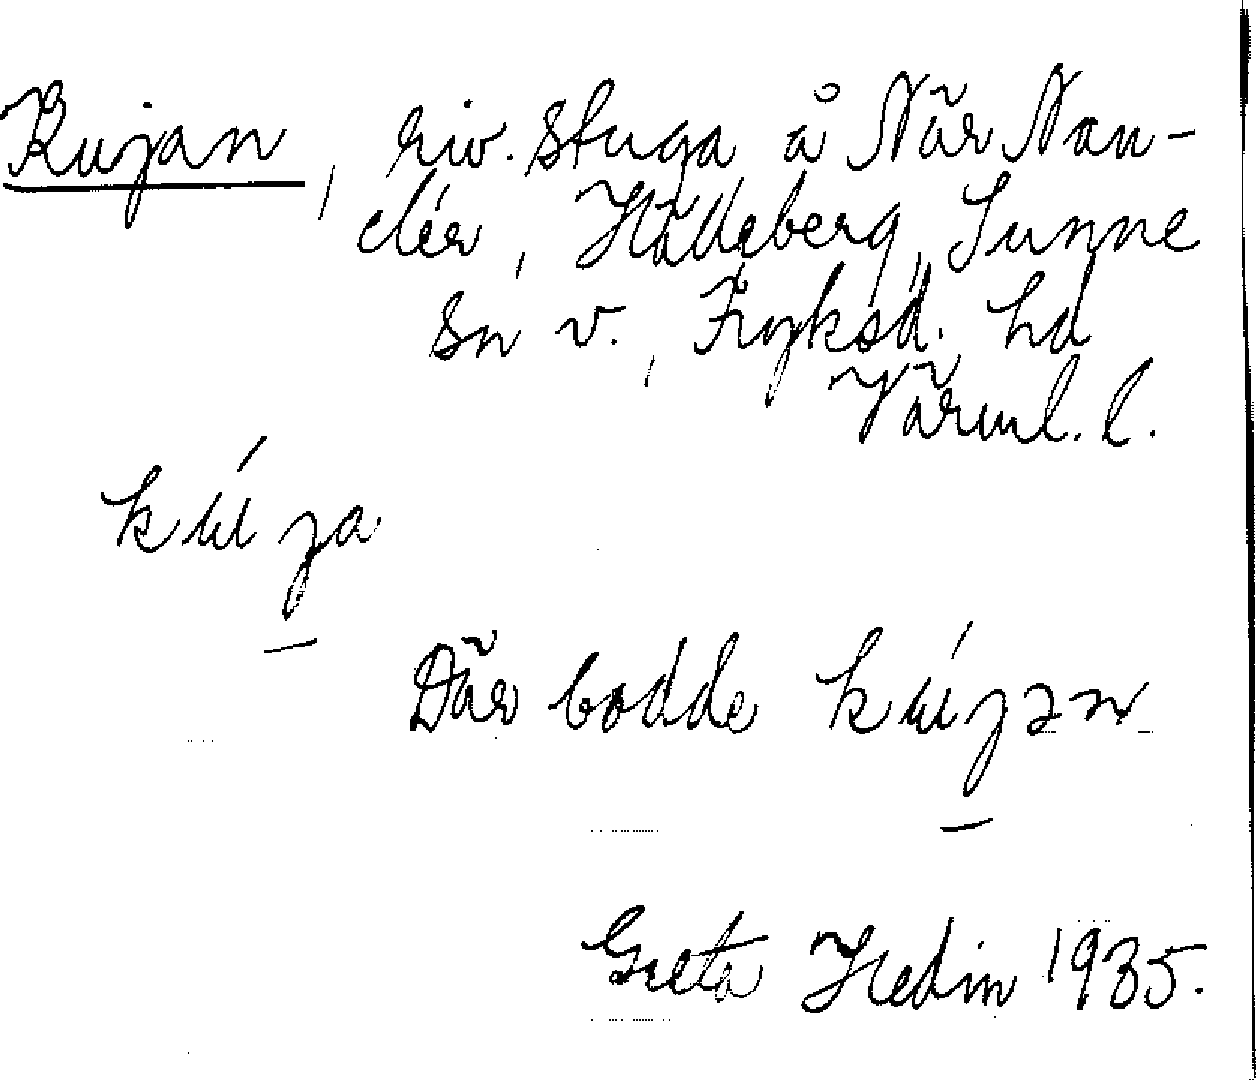 Kujan, riv. stuga å När Nan-
clér, Hälleberg, Sunne
sn v., Fryksd. hd
Värml. l.
kúȷa
Där bodde kúȷən
Greta Hedin 1935.